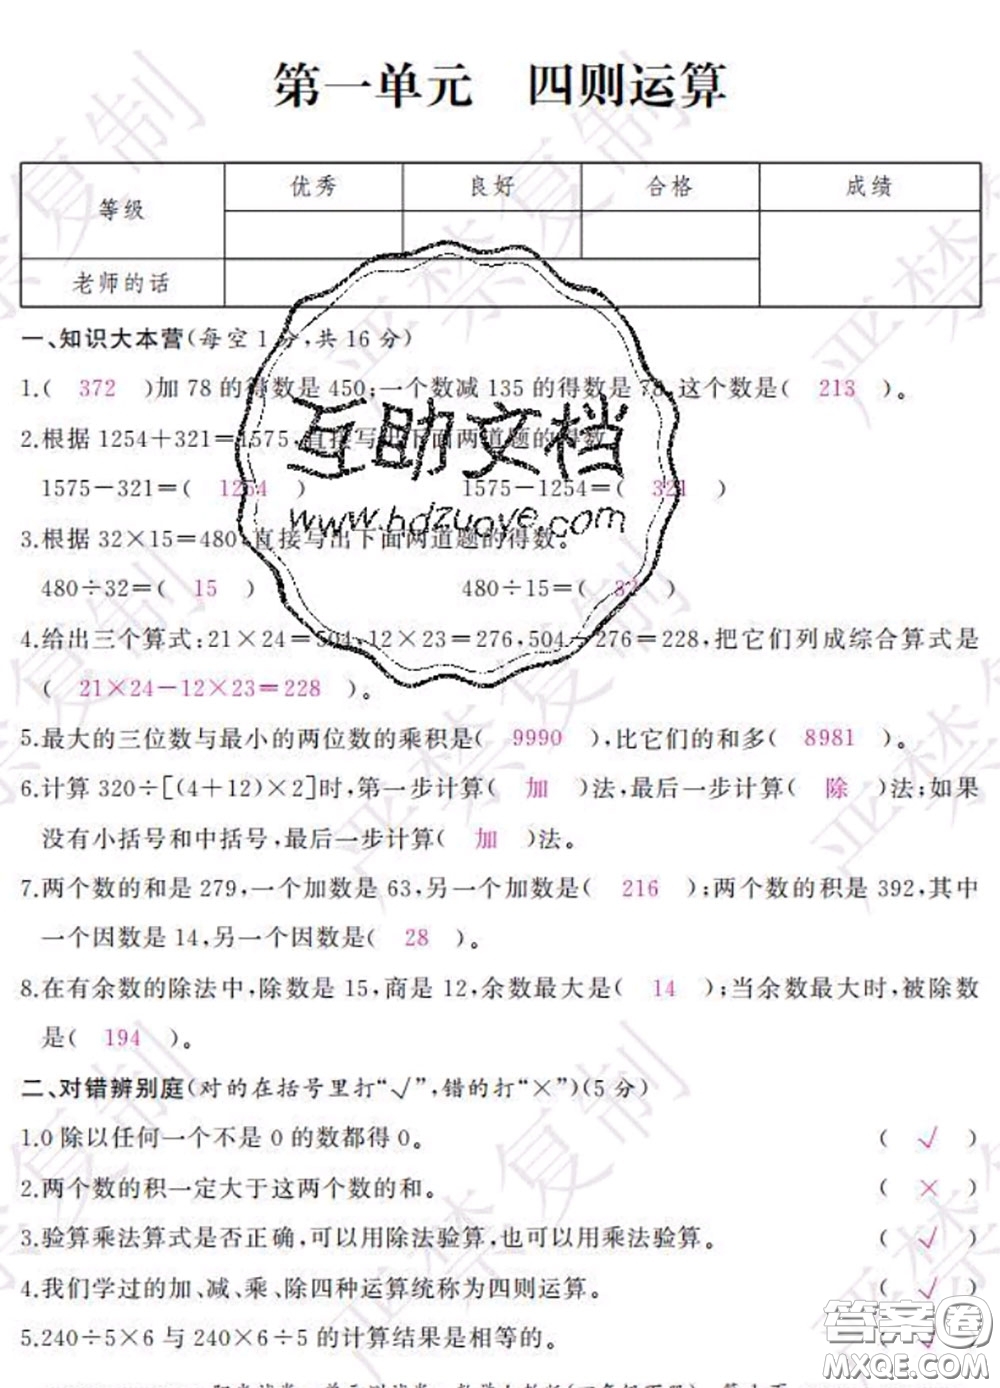 第一单元 四则运算
等级 优秀 良好 合格 成绩
老师的话
一、知识大本营(每空1分,共16分)
1.( 372 )加78的得数是450;一个数减135的得数是78,这个数是( 213 )。
2.根据1254+321=1575,直接写出下面两道题的得数。
1575-321=( 1254 ) 1575-1254=( 321 )
3.根据32×15=480,直接写出下面两道题的得数。
480÷32=( 15 ) 480÷15=( 32 )
4.给出三个算式:21×24=504,12×23=276,504-276=228,把它们列成综合算式是
( 21×24-12×23=228 )。
5.最大的三位数与最小的两位数的乘积是( 9990 ),比它们的和多( 8981 )。
6.计算320÷[(4+12)×2]时,第一步计算( 加 )法,最后一步计算( 除 )法;如果
没有小括号和中括号,最后一步计算( 加 )法。
7.两个数的和是279,一个加数是63,另一个加数是( 216 );两个数的积是392,其中
一个因数是14,另一个因数是( 28 )。
8.在有余数的除法中,除数是15,商是12,余数最大是( 14 );当余数最大时,被除数
是( 194 )。
二、对错辨别庭(对的在括号里打“√”,错的打“×”)(5分)
1.0除以任何一个不是0的数都得0。 ( √ )
2.两个数的积一定大于这两个数的和。 ( × )
3.验算乘法算式是否正确,可以用除法验算,也可以用乘法验算。 ( √ )
4.我们学过的加、减、乘、除四种运算统称为四则运算。 ( √ )
5.240÷5×6与240×6÷5的计算结果是相等的。 ( √ )
互助文档
www.hdzuoye.com
严禁复制
答案圈
MXQE.COM